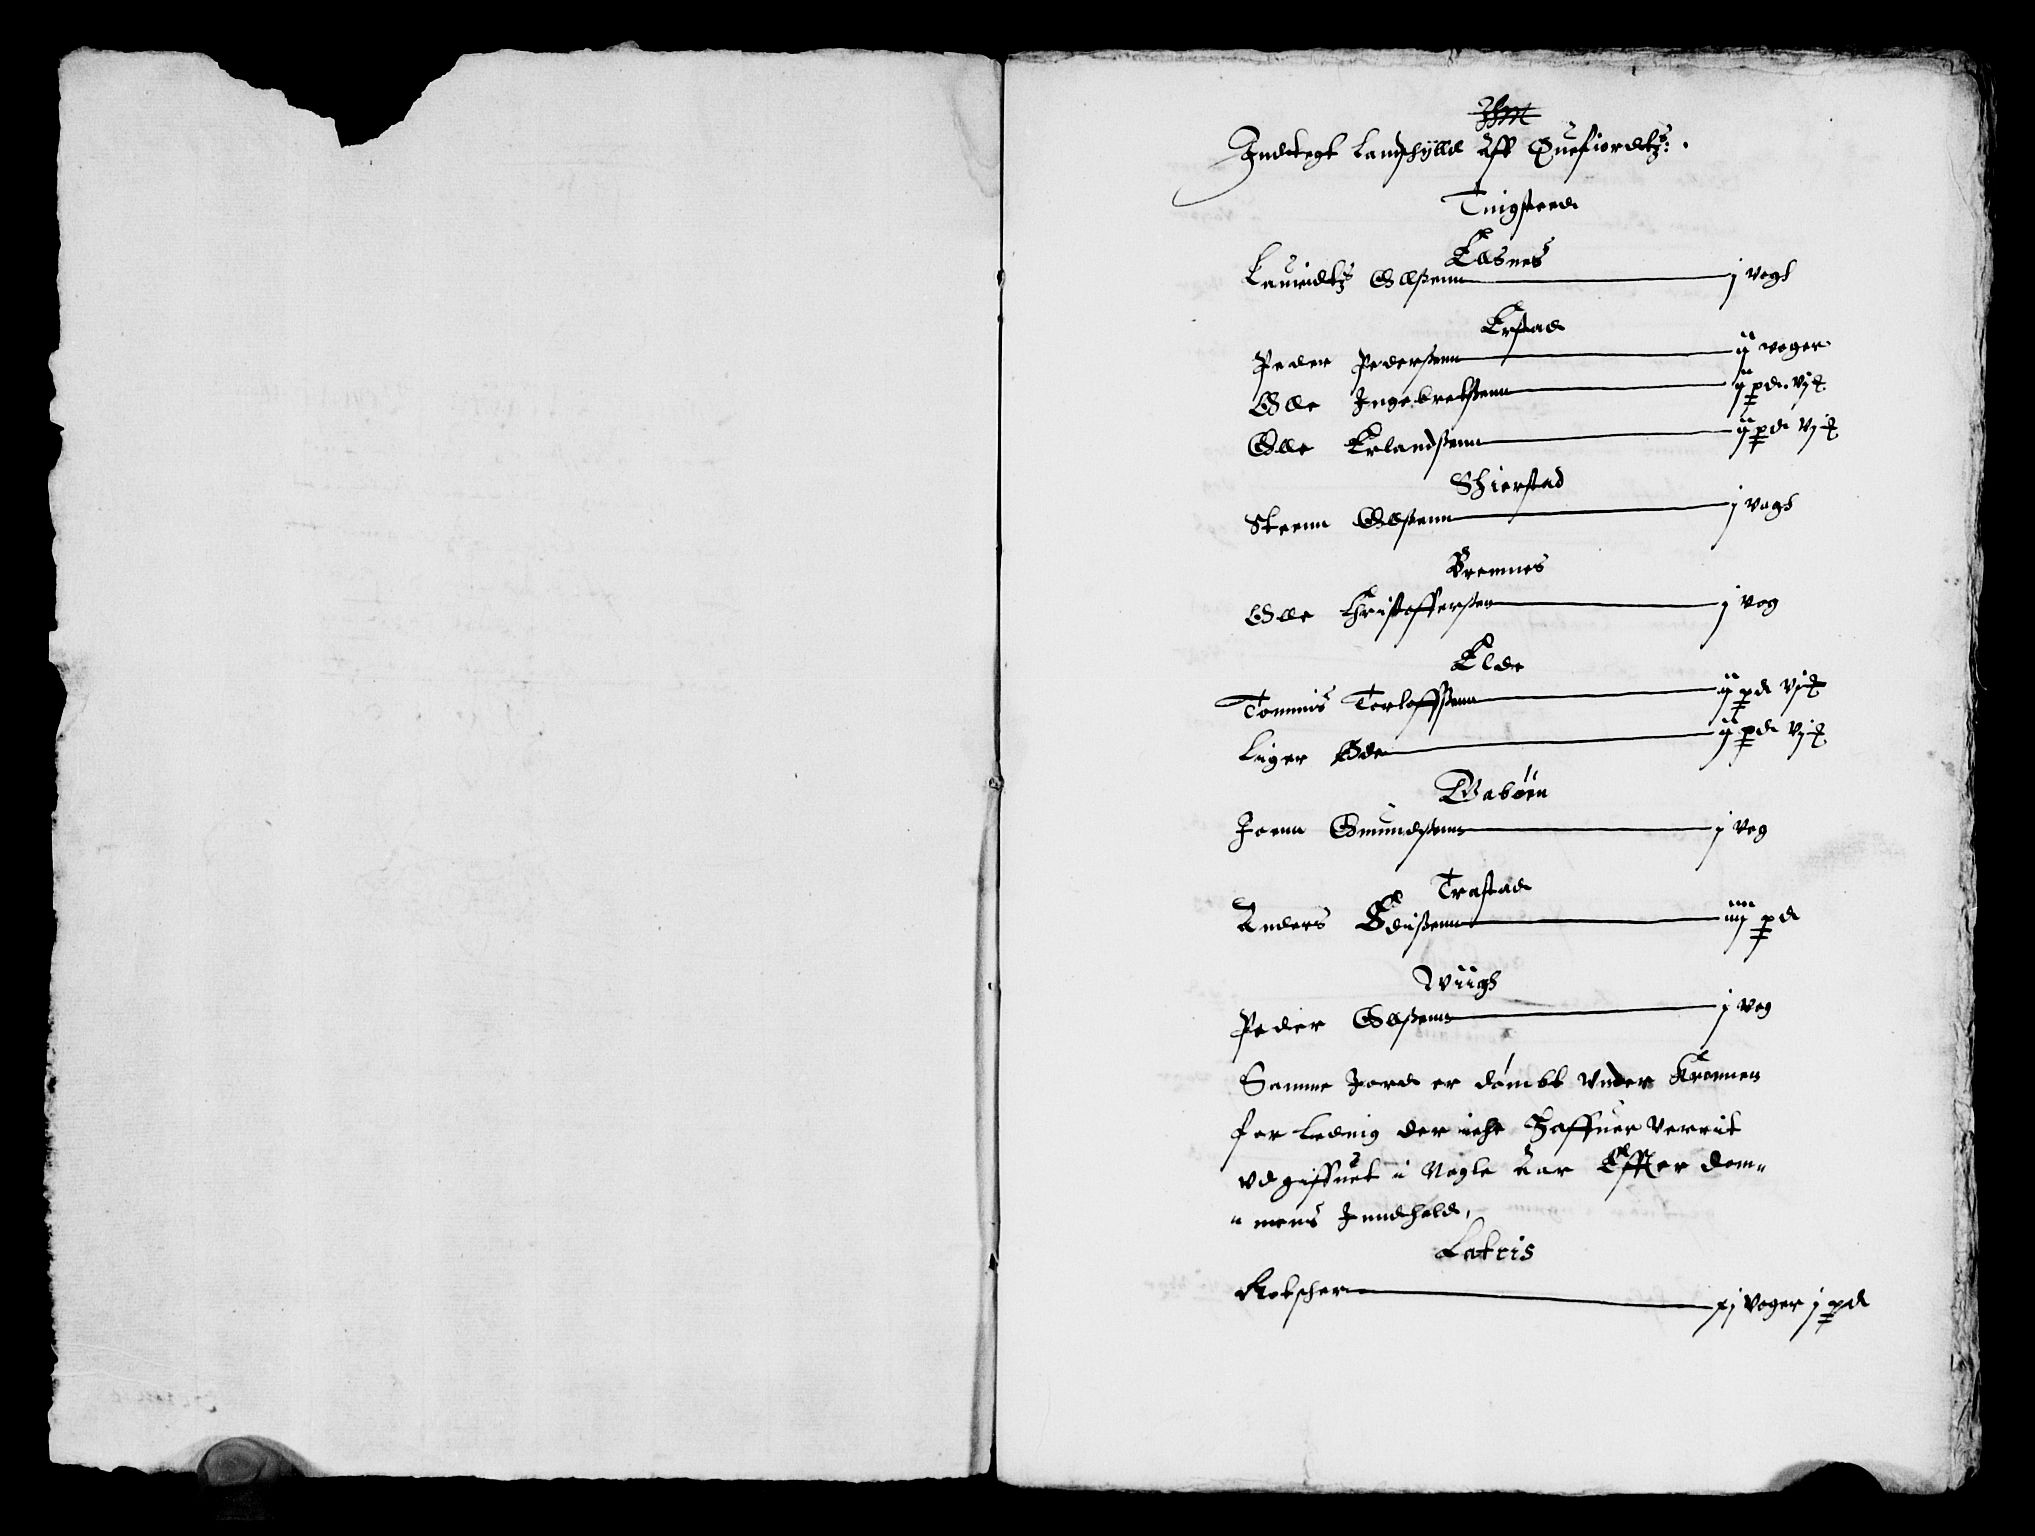 Indtegt Landschylld aff Quefiordtz:
Tingsted
Elsnes
Lauridtz Ollßenn j vogh
Erstad
Peder Pederßenn ij voger
Olle Ingebretßenn ij pd. vj
Olle Erlandßenn ij pd vj
Schierstad
Steenn Ollßenn j vogh
Bremnes
Olle Christofferßen j vog
Elde
Tommis Torloffßenn ij pd vj
Liger Øde ij pd vj
Wabøen
Joenn Omundßenn j vog
Trastad
Anders Edisßenn iiij pd
Wiigh
Peder Ollßenn j vog
Samme Jord er dømbt under Kronnen
for Leding der icke haffuer verrit
udgiffuet i Nogle aar Effter dom„
„mens Inndhold.
Lateris
Rotscher xj voger j pd